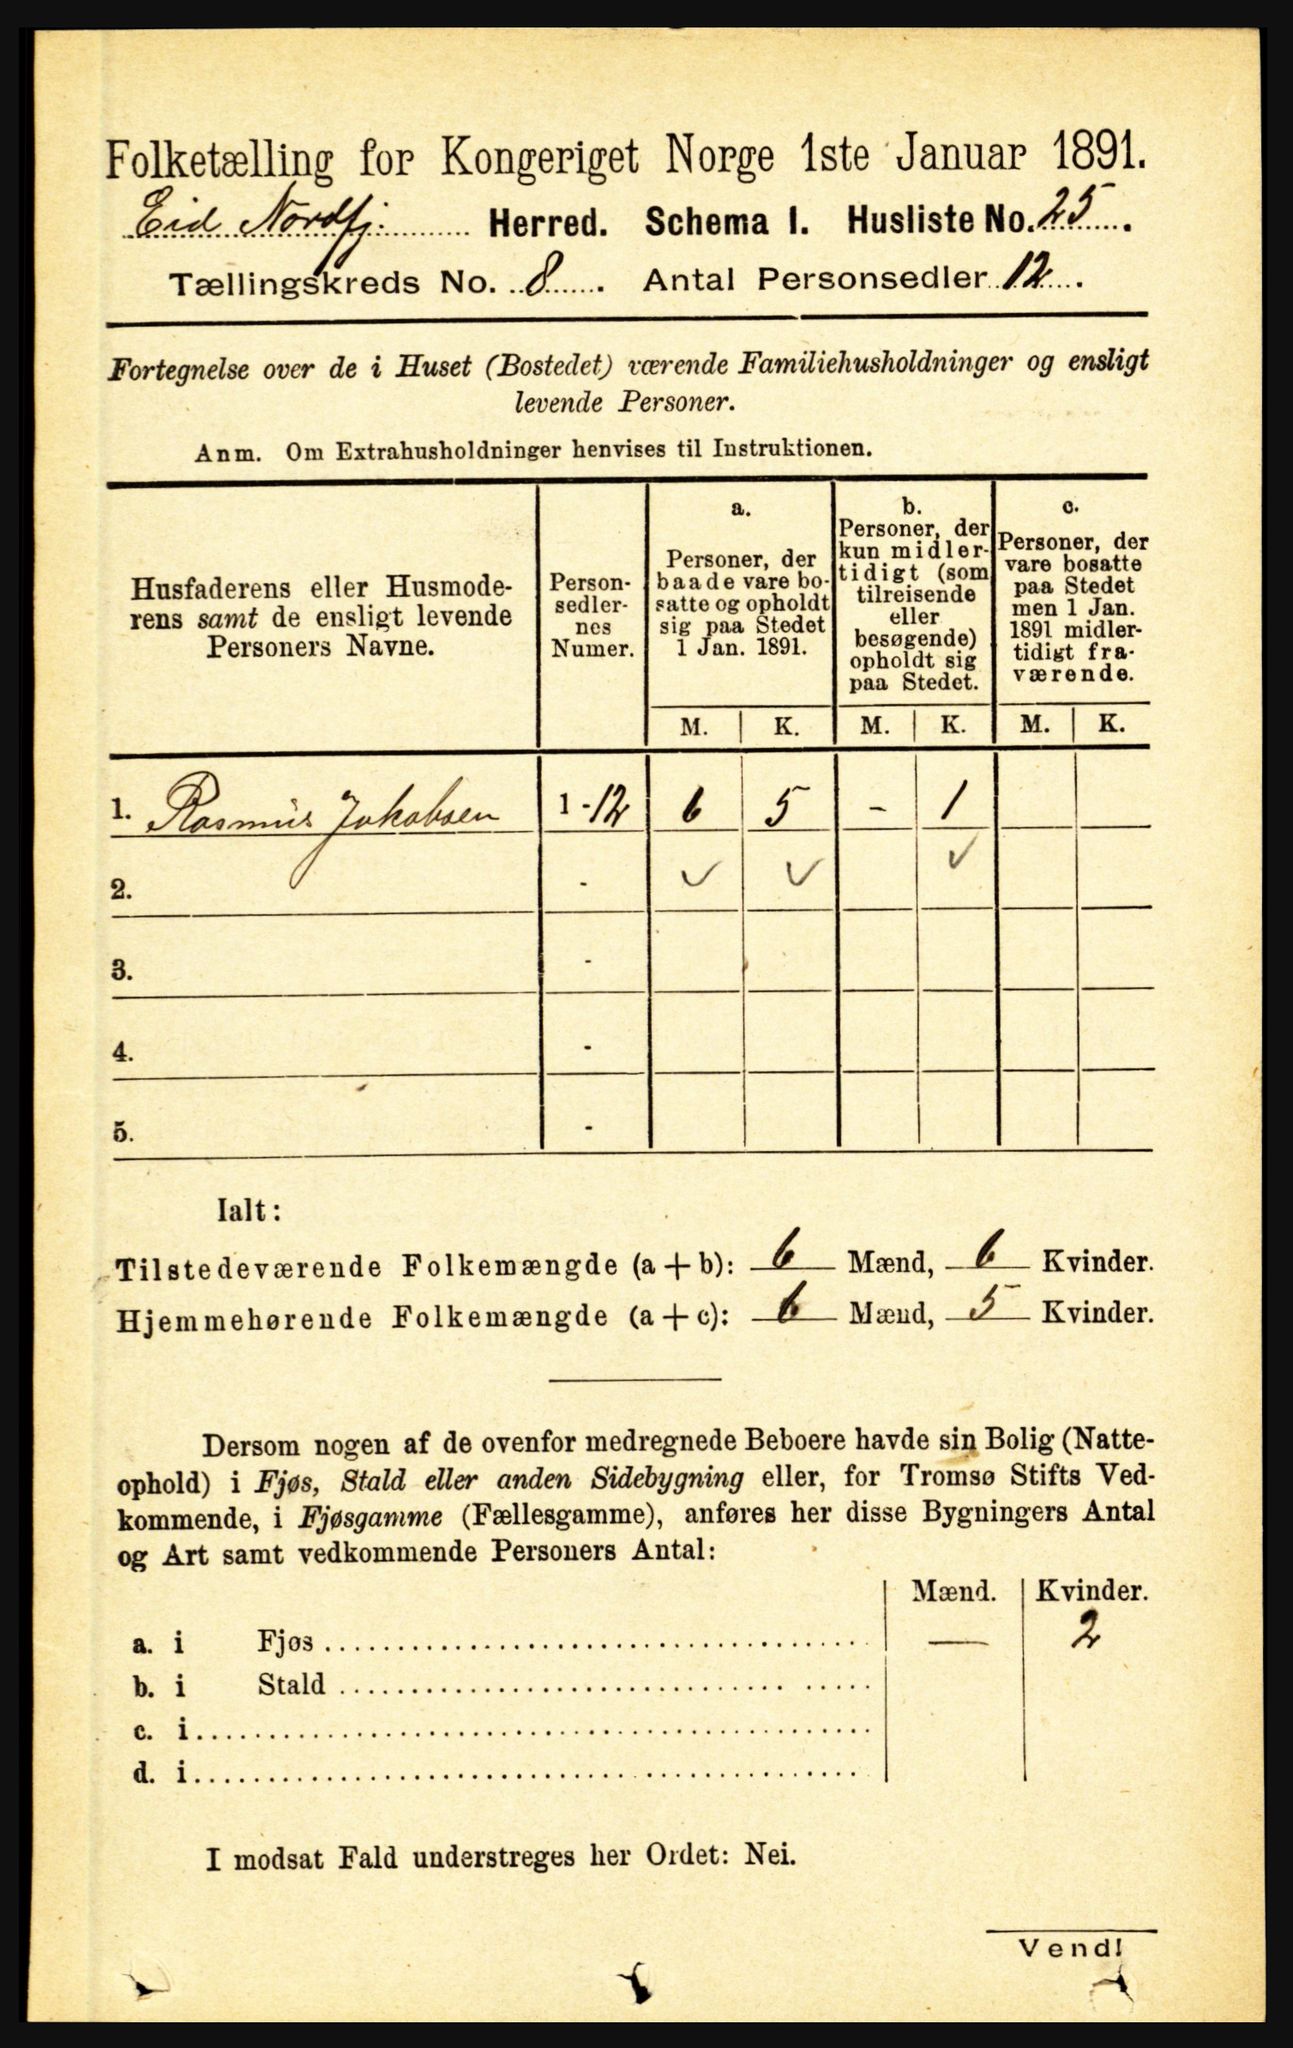 Folketælling for Kongeriget Norge 1ste Januar 1891.
Eid Nordfj. Herred. Schema I. Husliste No. 25.
Tællingskreds No. 8. Antal Personsedler 12.
Fortegnelse over de i Huset (Bostedet) værende Familiehusholdninger og ensligt
levende Personer.
Anm. Om Extrahusholdninger henvises til Instruktionen.
Husfaderens eller Husmode-
rens samt de ensligt levende
Personers Navne.
Person-
sedler-
nes
Numer.
a.
Personer, der
baade vare bo-
satte og opholdt
sig paa Stedet
1 Jan. 1891.
b.
Personer, der
kun midler-
tidigt (som
tilreisende
eller
besøgende)
opholdt sig
paa Stedet.
c.
Personer, der
vare bosatte
paa Stedet
men 1 Jan.
1891 midler-
tidigt fra-
værende.
M. K. M. K. M. K.
1. Rasmus Jakobsen 1 - 12 6 5 - 1
2. - ✓ ✓ ✓
3. -
4. -
5. -
Ialt:
Tilstedeværende Folkemængde (a + b): 6 Mænd, 6 Kvinder.
Hjemmehørende Folkemængde (a + c): 6 Mænd, 5 Kvinder.
Dersom nogen af de ovenfor medregnede Beboere havde sin Bolig (Natte-
ophold) i Fjøs, Stald eller anden Sidebygning eller, for Tromsø Stifts Ved-
kommende, i Fjøsgamme (Fællesgamme), anføres her disse Bygningers Antal
og Art samt vedkommende Personers Antal:
Mænd. Kvinder.
a. i Fjøs — 2
b. i Stald
c. i
d. i
I modsat Fald understreges her Ordet: Nei.
Vend!